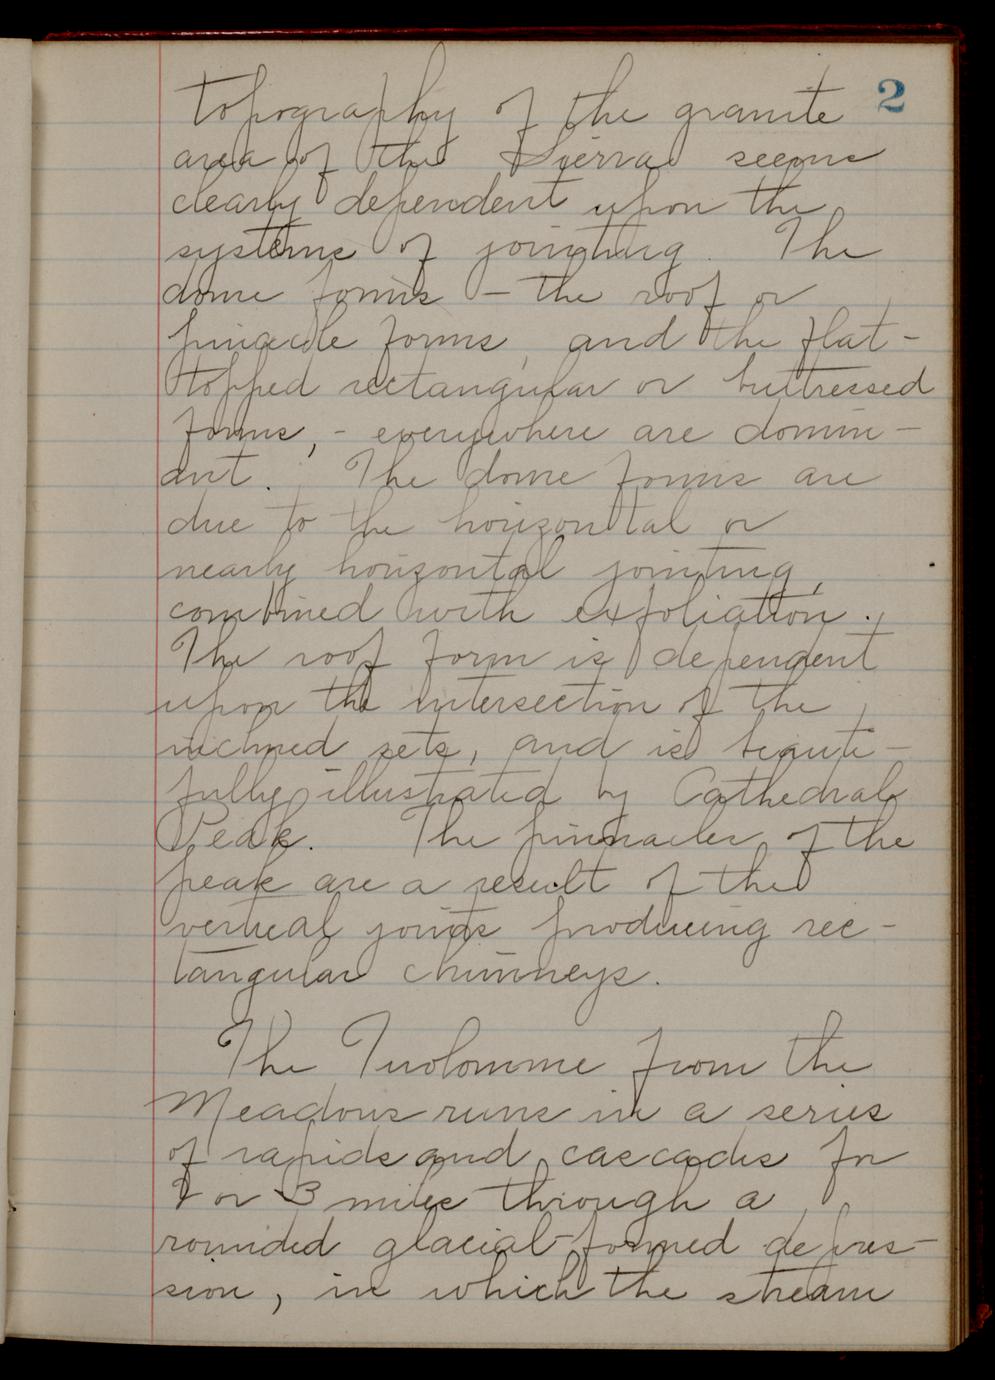 2
topography of the granite
area of the Sierra seems
clearly dependent upon the
systems of jointing. The
dome forms – the roof or
pinnacle forms, and the flat-
topped rectangular or buttressed
forms, - everywhere are domin-
ant. The dome forms are
due to the horizontal or
nearly horizontal jointing,
combined with exfoliation.
The roof form is dependent
upon the intersection of the
inclined sets, and is beauti-
fully illustrated by Cathedral
Peak. The pinnacles of the
peak are a result of the
vertical joints producing rec-
tangular chimneys.
The Tuolomme from the
Meadows runs in a series
of rapids and cascades for
2 or 3 miles through a
rounded glacial-formed depres-
sion, in which the stream